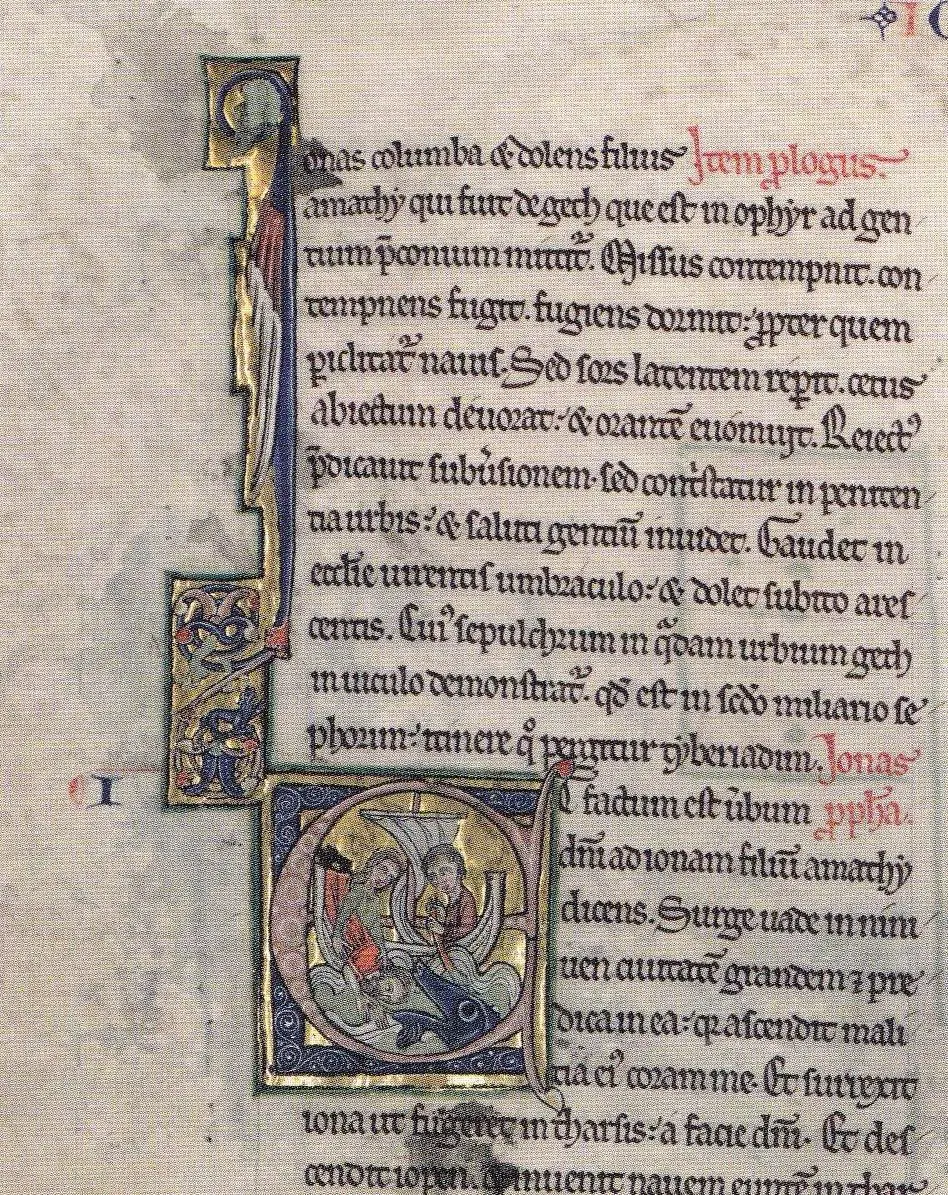 I O
Jonas columba & dolens filius Item p̱logus.
amathy qui fuit de gech que est in ophyr ad gen
tium p̄conium mittit᷑. Missus contempnit. con
tempnens fugit. fugiens dormit: ꝓpter quem
ꝑiclitat᷑ nauis. Sed sors latentem reꝑit. cetus
abiectum deuorat: & orantē euomuit. Reiectꝰ
p̄dicauit subūsionem. sed contⁱstatur in peniten
tia urbis: & saluti gentiū inuidet. Gaudet in
eccłie uirentis umbraculo: & dolet subito ares
centis. Cuiꝰ sepulchrum in qͣdam urbium gech
in uiculo demonstrat᷑. qđ est in scđo miliario se
phorim: itinere qͦ pergitur tyberiadum. Jonas
I
Et factum est ūbum ꝓpħa.
dn̄i ad ionam filiū amathy
dicens. Surge uade in nini
uen ciuitatē grandem ⁊ pre
dica in ea: qꝛ ascendit mali
tia eiꝰ coram me. Et surrexit
iona ut fugeret in tharsis: a facie dn̄i. Et des
cendit iopen. & inuenit nauem euntē in thar